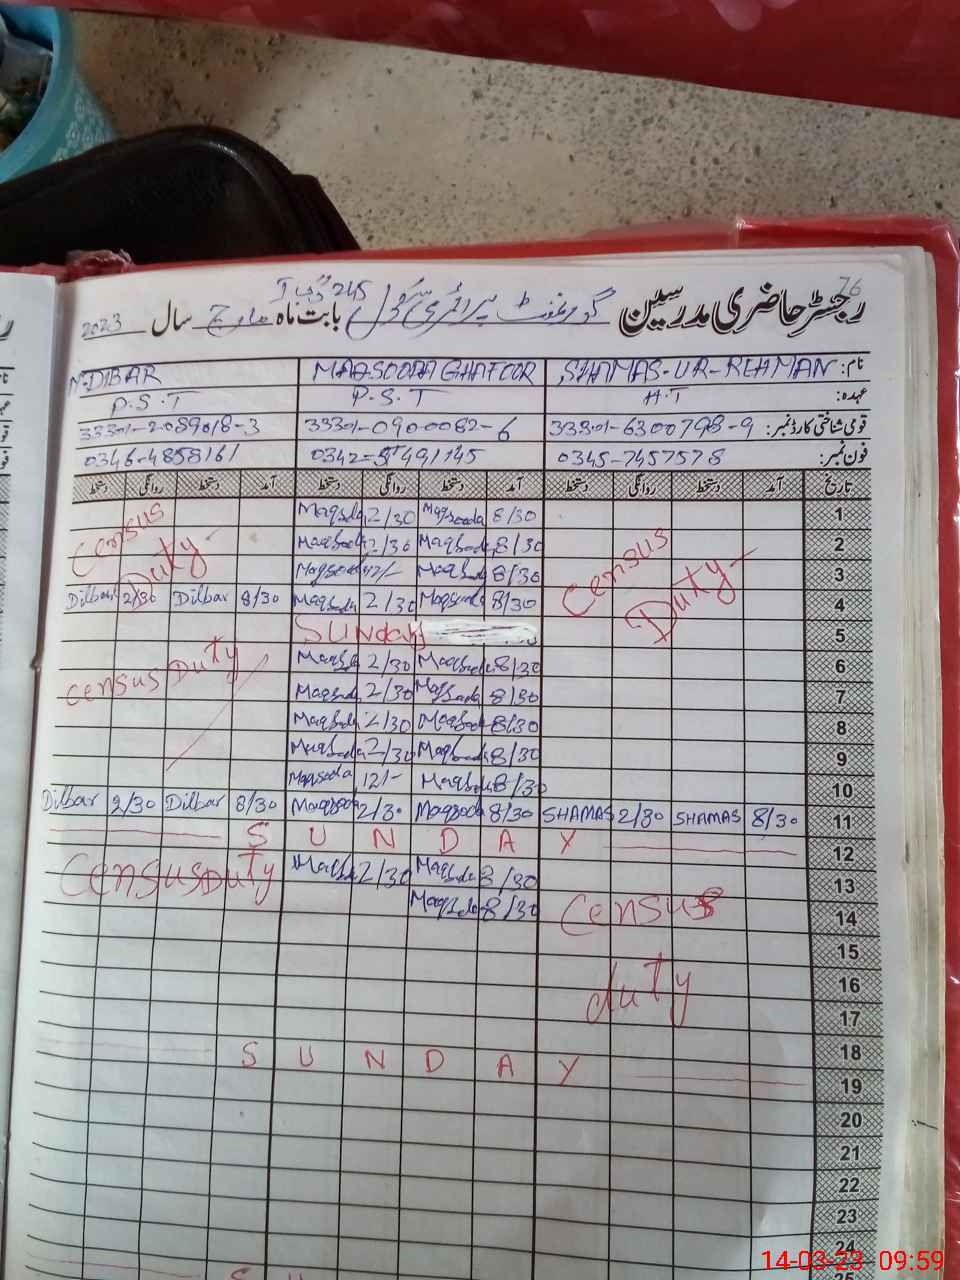 76
رجسٹر حاضری مدرسین گورنمنٹ پرائمری سکول 245 گ ب بابت ماہ مارچ سال 2023
نام: SHAMAS-UR-REHMAN MAQSOODA GHAFOOR N-DIBAR
عہدہ: H.T P.S.T P.S.T
قومی شناختی کارڈ نمبر: 33301-6300798-9 33301-0900082-6 33301-2089618-3
فون نمبر: 0345-7457578 0342- 0346-4858161
تاریخ آمد دستخط روانگی دستخط آمد دستخط روانگی دستخط آمد دستخط روانگی دستخط
Maqsoda 2/30 Maqsooda 8/30 1
Census Maqsoda 2/30 Maqsoda 8/30 Census 2
Duty Maqsooda 12/- Maqsoda 8/30 Duty 3
Dilbar 2/30 Dilbar 8/30 Maqsoda 2/30 Maqsooda 8/30 4
SUNday 5
Census Duty Maqsoda 2/30 Maqsoda 8/30 6
Maqsoda 2/30 Maqsooda 8/30 7
Maqsoda 2/30 Maqsoda 8/30 8
Maqsoda 2/30 Maqsooda 8/30 9
Maqsoda 12/- Maqsoda 8/30 10
Dilbar 2/30 Dilbar 8/30 Maqsoda 2/30 Maqsoda 8/30 SHAMAS 2/30 SHAMAS 8/30 11
S U N D A Y 12
Census Duty Maqsoda 2/30 Maqsoda 8/30 13
Maqsoda 8/30 Census 14
15
duty 16
17
18
S U N D A Y 19
20
21
22
23
24
25
S U
14-03-23 09:59